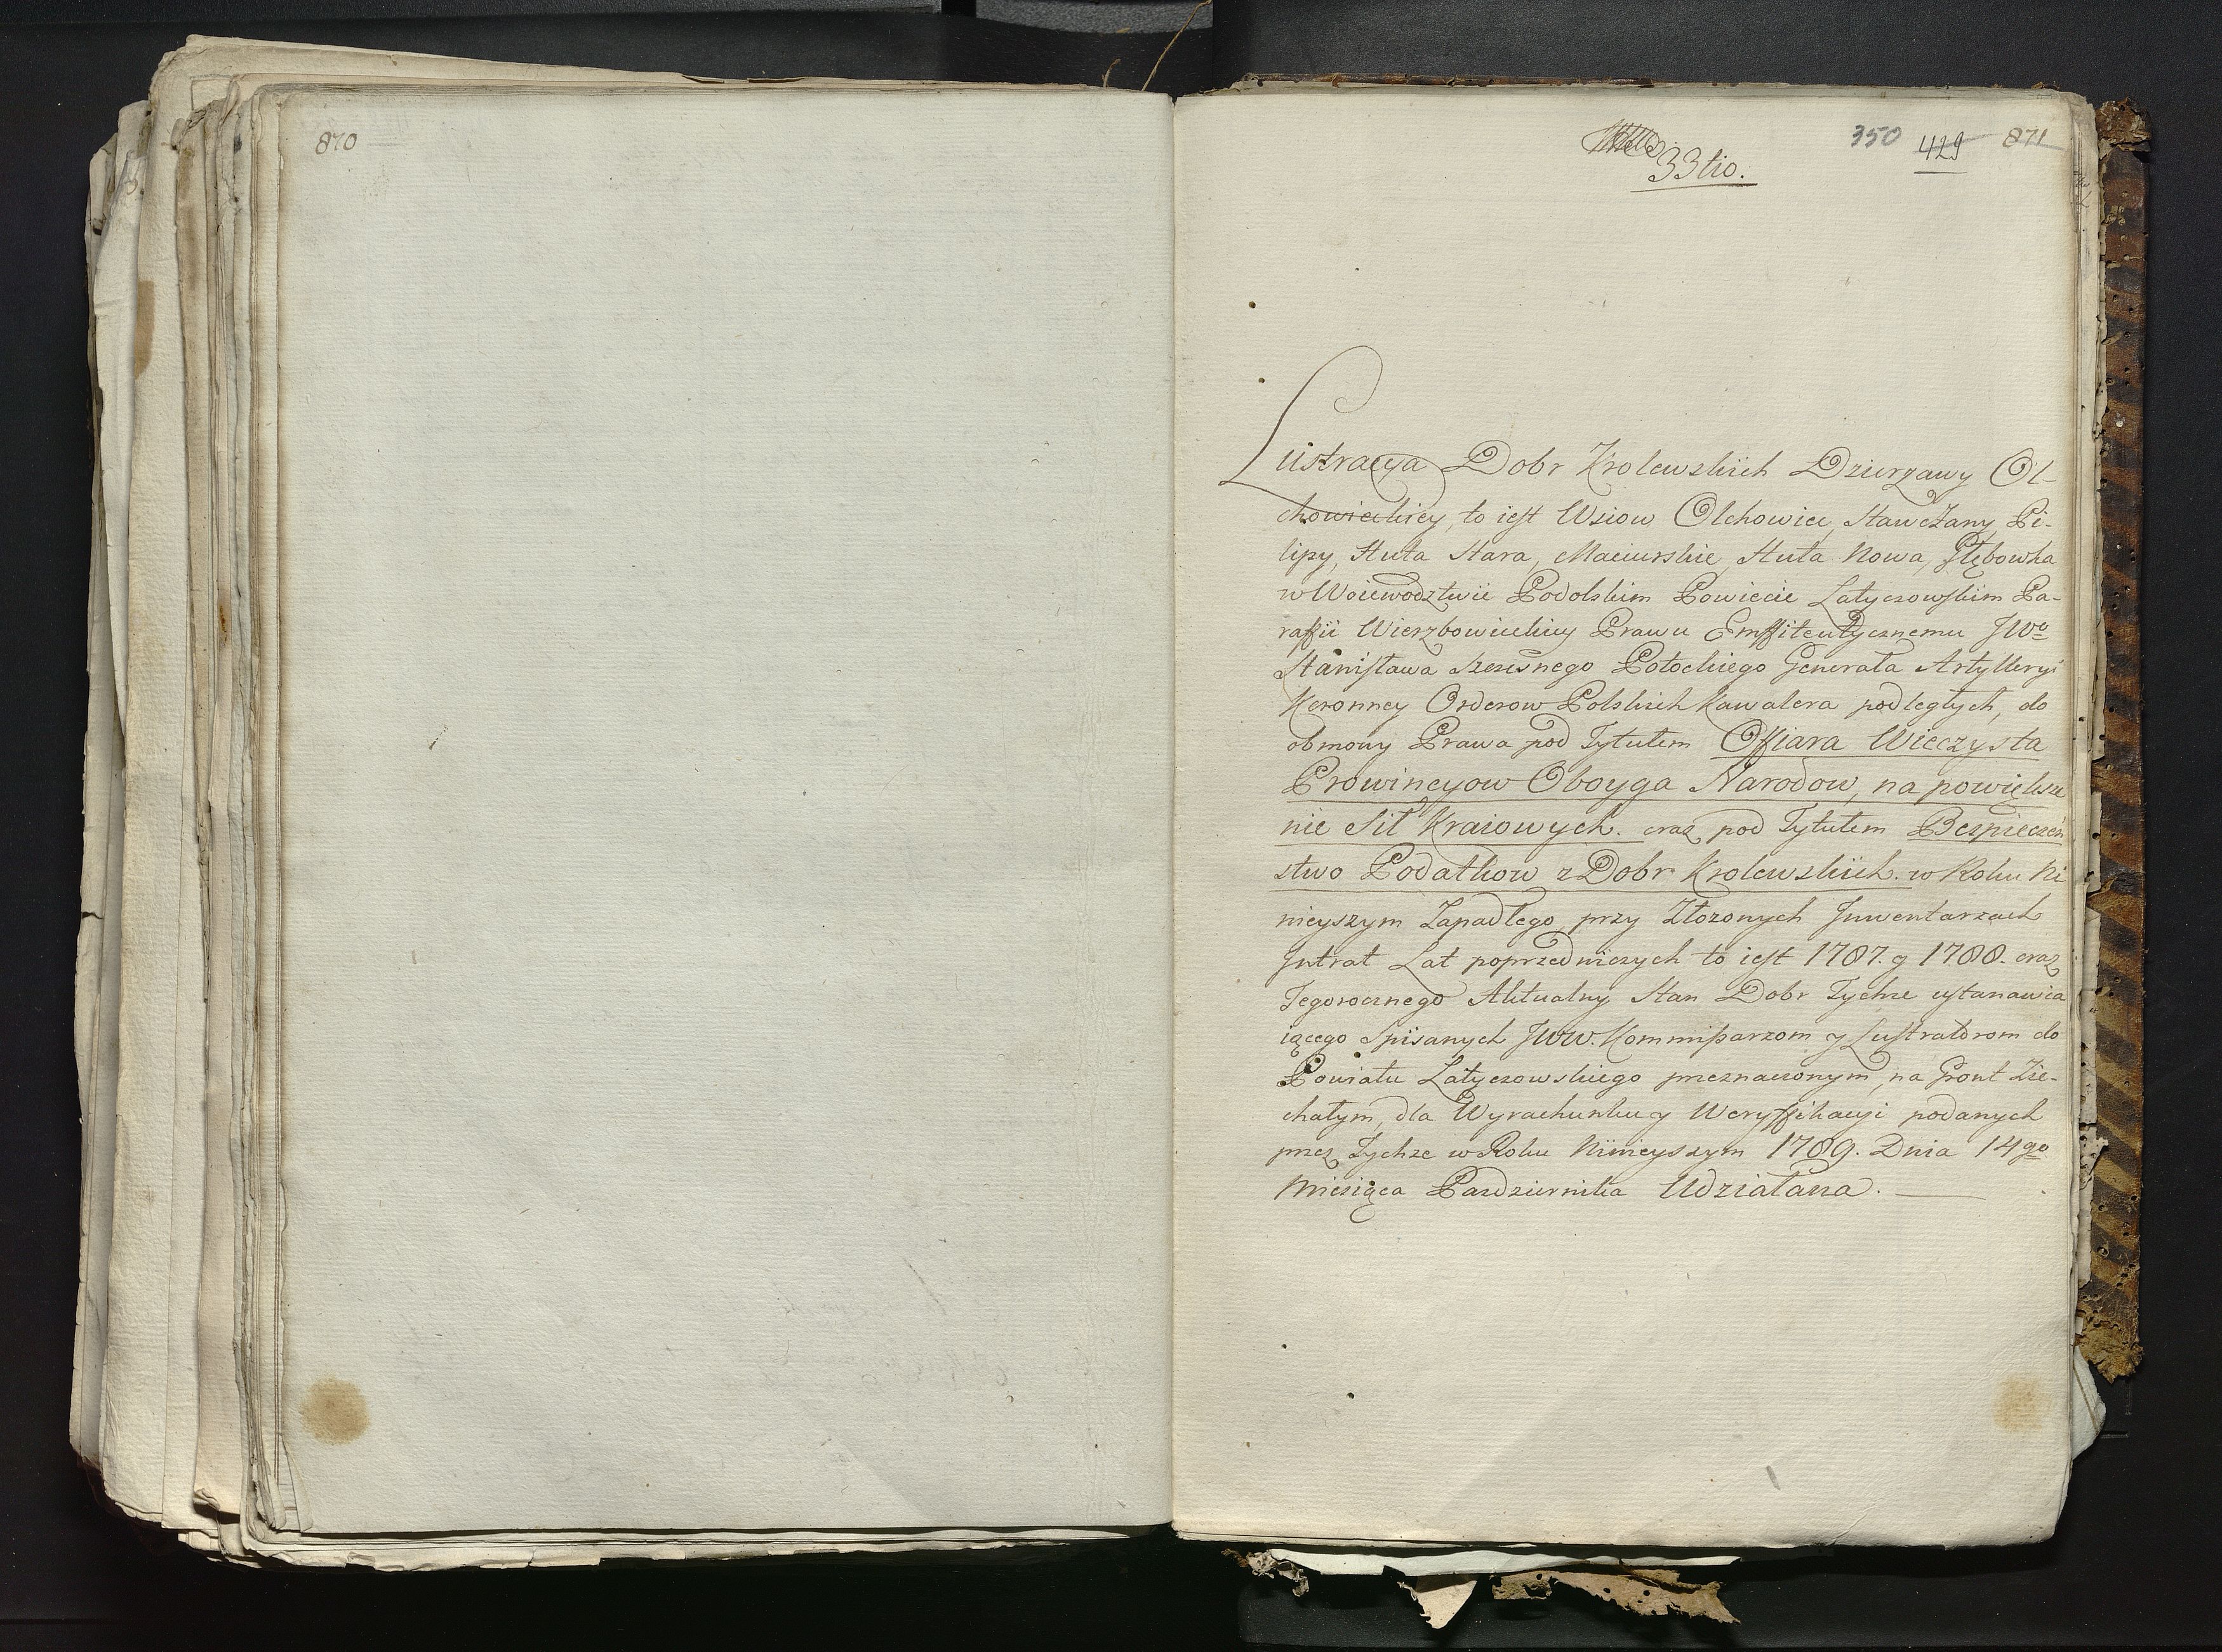 870
350 429 871
33tio.
Lustracya Dobr Krolewskich Dzierzawy Ol-
chowieckiey, to iest Wsiow Olchowiec, Stawczany, Pi-
lipy, Huta Stara, Maciurskie, Huta Nowa, Głębowka
w Woiewodztwie Podolskim Powiecie Latyczowskim Pa-
rafii Wierzbowieckiey Prawu Emffiteutycznemu JWo
Stanisława Szczęsnego Potockiego Generała Artylleryi
Koronney Orderow Polskich Kawalera podległych, do
obmowy Prawa pod Tytułem Offiara Wieczysta
Prowincyow Oboyga Narodow, na powiększe
nie Sił Kraiowych. oraz pod Tytułem Bespieczeń
stwo Podatkow z Dobr Krolewskich. w Roku Ni
nieyszym Zapadłego, przy Złozonych Inwentarzach
Intrat Lat poprzedniczych to iest 1787. y 1788. oraz
Tegorocznego Aktualny Stan Dobr Tychze ustanawia
iącego Spisanych JWW. Kommissarzom y Lustratorom do
Powiatu Latyczowskiego przeznaczonym, na Gront Zie-
chałym, dla Wyrachunku y Weryffikacyi podanych
przez Tychze w Roku Ninieyszym 1789. Dnia 14go
Miesiąca Pazdziernika Udziałana.